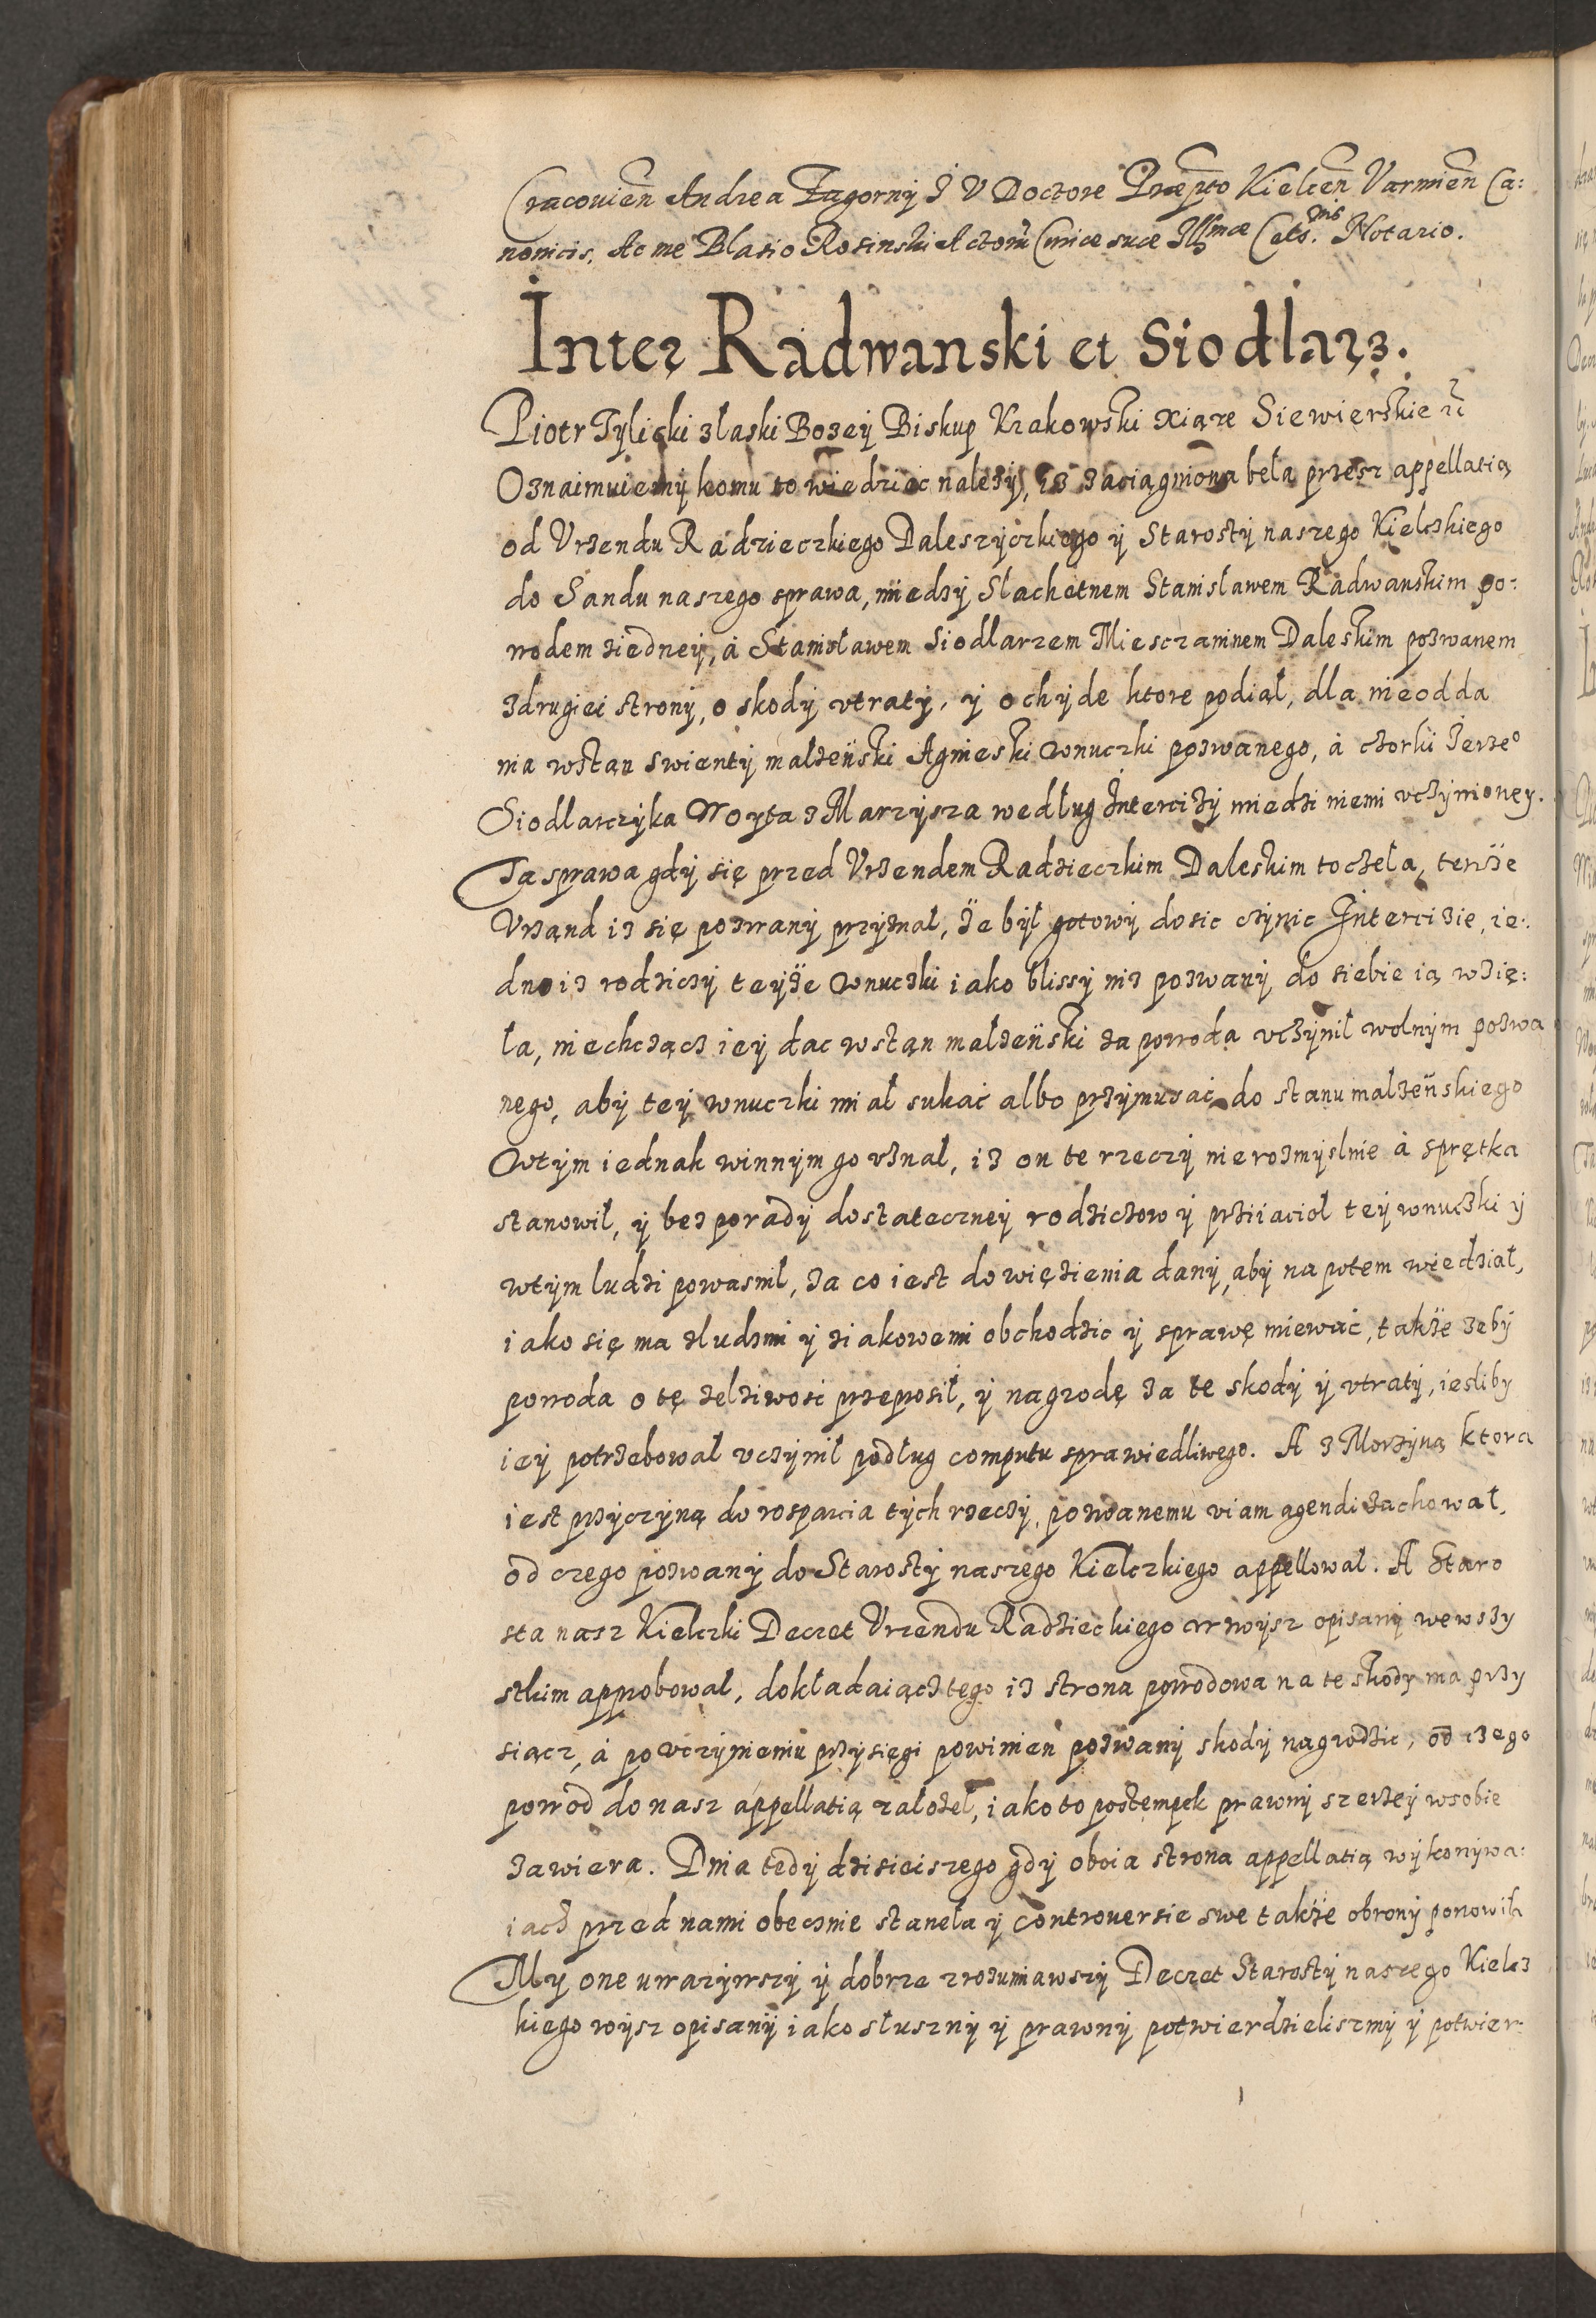 Cracouien Andrea Zagorny I V Doctore Præpto Kielcen Varmien Ca:
nonicis. Ac me Blasio Rosinski Actoru Curiæ suæ Illmæ Celsnis. Notario.
Inter Radwanski et Siodlarz.
Piotr Tylicki złaski Bozey Biskup Krakowski Xiąze Siewierskie
Oznaimuiemy komu to wiedziec nalezy, iz zaciągniona beła przesz appellatią
od Vrzendu Radzieczkiego Daleszyczkiego y Starosty naszego Kielczkiego
do Sandu naszego sprawa, miedzy Slachetnem Stanisławem Radwanskim po:
wodem ziedney, á Stanisławem Siodlarzem Miesczaninem Daleskim pozwanem
zdrugiei strony, o skody vtraty, y ochyde ktore podiął, dla nieodda
nia wstan swienty małzenski Agnieski wnuczki pozwanego, á czorki Ierzeo
Siodlarczyka Woyta z Marzysza według Intercizy miedzi niemi vczynioney.
Ta sprawa gdy się przed Vrzendem Radzieczkim Daleskim toczeła, tenze
Vrząnd iz się pozwany przyznał, ze był gotowy dosic czynic Intercizie, ie:
dno iz rodziczy teyze wnuczki iako blissy niz pozwany do siebie ią wzię:
ła, niechcząncz iey dac wstąn małzenski za powoda vczynił wolnym pozwa
nego, aby tey wnuczki miał sukać albo przymusać do stanu małzenskiego
Wtym iednak winnym go vznał, iz on te rzeczy nierozmyslnie á sprętka
stanowił, y bez porady dostateczney rodziczow y prziiacioł tey wnuczki y
wtym ludzi powasnił, za co iest do więzienia dany, aby napotem wiedział,
iako się ma zludzmi y ziakowemi obchodzic y sprawę miewać, takze zeby
powoda o tę zelziwosc przeprosił, y nagrodę za te skody y vtraty, iesliby
iey potrzebował vczynił podług computu sprawiedliwego. A z Morzyną ktora
iest przyczyną do rosparcia tych rzeczy, pozwanemu viam agendi zachował,
od czego pozwany do Starosty naszego Kielczkiego appellował. A Staro
sta nasz Kielczki Decret Vrzendu Radzieckiego wwysz opisany wewszy
stkim approbował, dokładaiącz tego iz strona powodowa na te skody ma przy
siącz, á po vczynieniu przysięgi powinien pozwany skody nagrodzic, od czego
powod do nasz appellatią załozeł, iako to postempek prawny szerzey wsobie
zawiera. Dnia tedy dzisieiszego gdy oboia strona appellatią wykonywa:
iącz przed nami obecznie staneła y controuersie swe takze obrony ponowiła
My one uwazywszy y dobrze zrozumiawszy Decret Starosty naszego Kielcz
kiego wysz opisany iako słuszny y prawny potwierdzieliszmy y potwier: